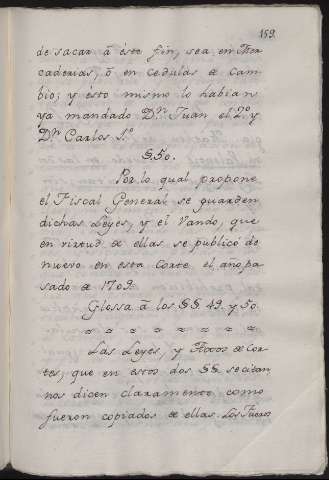 159.
de sacar á éste fin, sea en Mer
caderias, ó en cedulas de Cam
bio; y ésto mismo lo habian
ya mandado Dn. Juan el 2.º y
Dn Carlos 1.º
§.50.
Por lo qual propone
el Fiscal General se guarden
dichas Leyes, y el Vando, que
en virtud de ellas se publicó de
nuevo en esta Corte el año pa
sado de 1709.
Glossa á los §§ 49. y 50.
Las Leyes, y Autos de Cor
tes, que en estos dos §§. se citan,
nos dicen claramente como
fueron copiados de ellas. Los Fueros